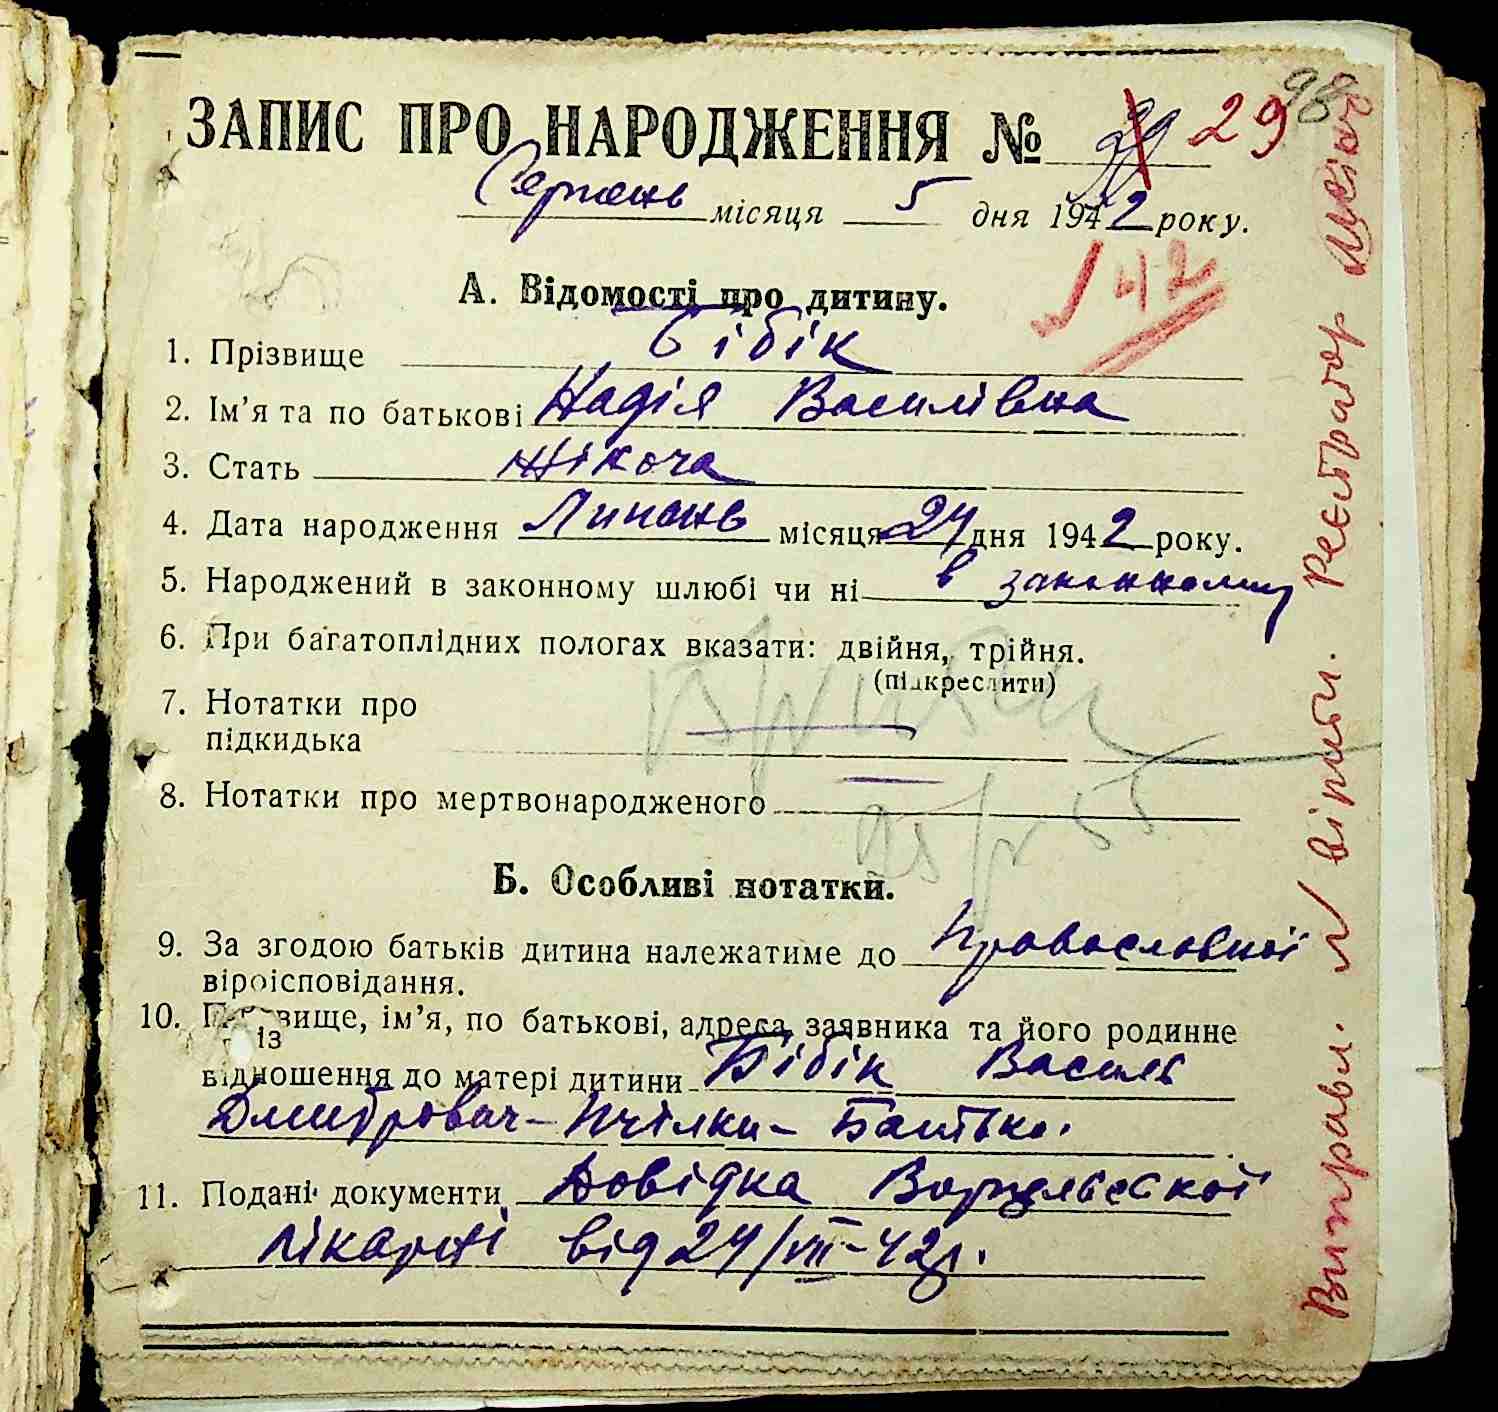 98
ЗАПИС ПРО НАРОДЖЕННЯ № 29
Серпень місяця 5 дня 1942 року.
42
А. Відомості про дитину.
1. Прізвище Бібік
2. Ім’я та по батькові Надія Василівна
3. Стать жіноча
4. Дата народження Липень місяця 24 дня 1942 року.
5. Народжений в законному шлюбі чи ні в законному
6. При багатоплідних пологах вказати: двійня, трійня.
(підкреслити)
7. Нотатки про
підкидька
8. Нотатки про мертвонародженого
55
Б. Особливі нотатки.
9. За згодою батьків дитина належатиме до православної
віроісповідання.
10. Прізвище, ім’я, по батькові, адреса заявника та його родинне
відношення до матері дитини Бібік Василь
Дмитрович - Пчілки - Батько.
11. Подані документи Довідка Ворзельської
лікарні від 24/VII-42р.
Виправл. 2 вірити. Реєстратор